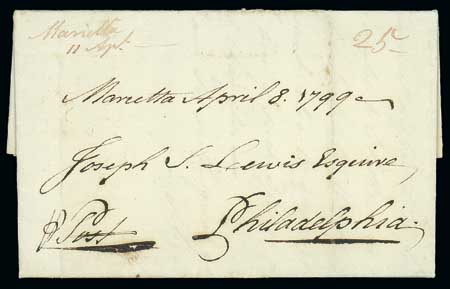 Marietta
11 Apl.
25
Marietta April 8. 1799
Joseph S. Lewis Esquire
Post
Philadelphia.